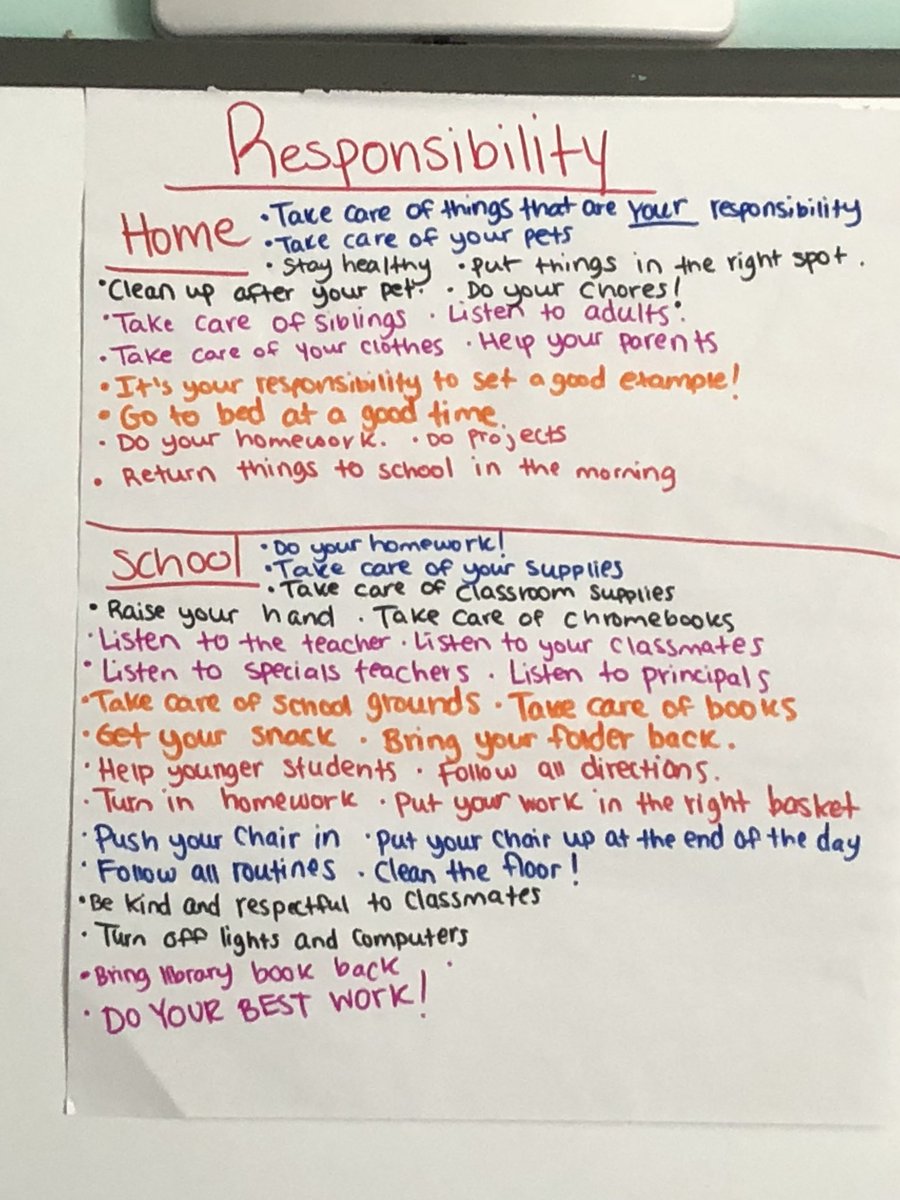 Responsibility
Home • Take care of things that are your responsibility
• Take care of your pets
• Stay healthy • Put things in the right spot.
• Clean up after your pet. • Do your chores!
• Take care of siblings • Listen to adults.
• Take care of your clothes • Help your parents
• It's your responsibility to set a good example!
• Go to bed at a good time.
• Do your homework. • Do projects
• Return things to school in the morning
School • Do your homework!
• Take care of your supplies
• Take care of classroom supplies
• Raise your hand • Take care of chromebooks
• Listen to the teacher • Listen to your classmates
• Listen to specials teachers • Listen to principals
• Take care of school grounds • Take care of books
• Get your snack • Bring your folder back.
• Help younger students • Follow all directions.
• Turn in homework • Put your work in the right basket
• Push your chair in • Put your chair up at the end of the day
• Follow all routines • Clean the floor!
• Be kind and respectful to classmates
• Turn off lights and computers
• Bring library book back •
• DO YOUR BEST WORK!